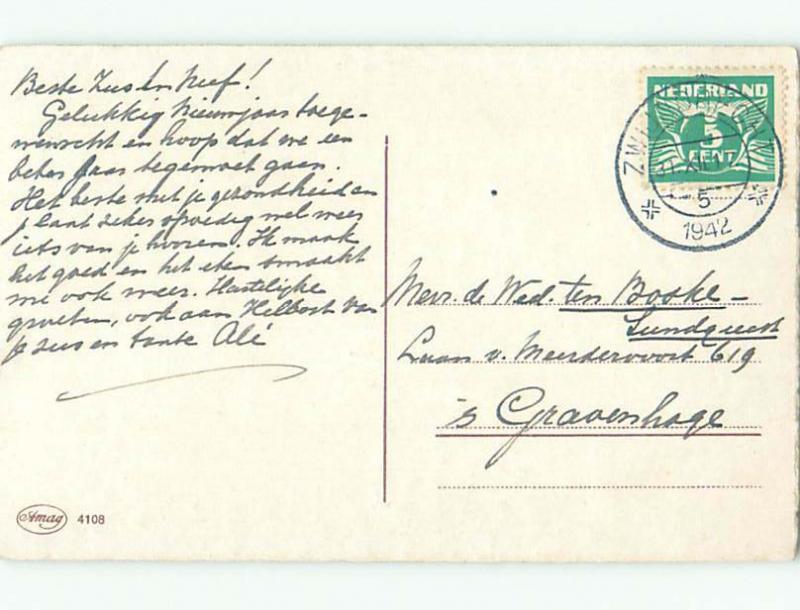 Beste Zus en Neef!
Gelukkig Nieuwjaar toege-
wenscht en hoop dat we een
beter jaar tegemoet gaan.
Het beste met je gezondheid en
je laat zeker spoedig wel weer
iets van je hooren. Ik maak
het goed en het eten smaakt
me ook weer. Hartelijke
groeten, ook aan Helbert van
je zus en tante Alé
NEDERLAND
5
CENT
5
1942
Mevr. de Wed. ten Boske-
Lundqvist
Laan v. Meerdervoort 619
's Gravenhage
Amag 4108